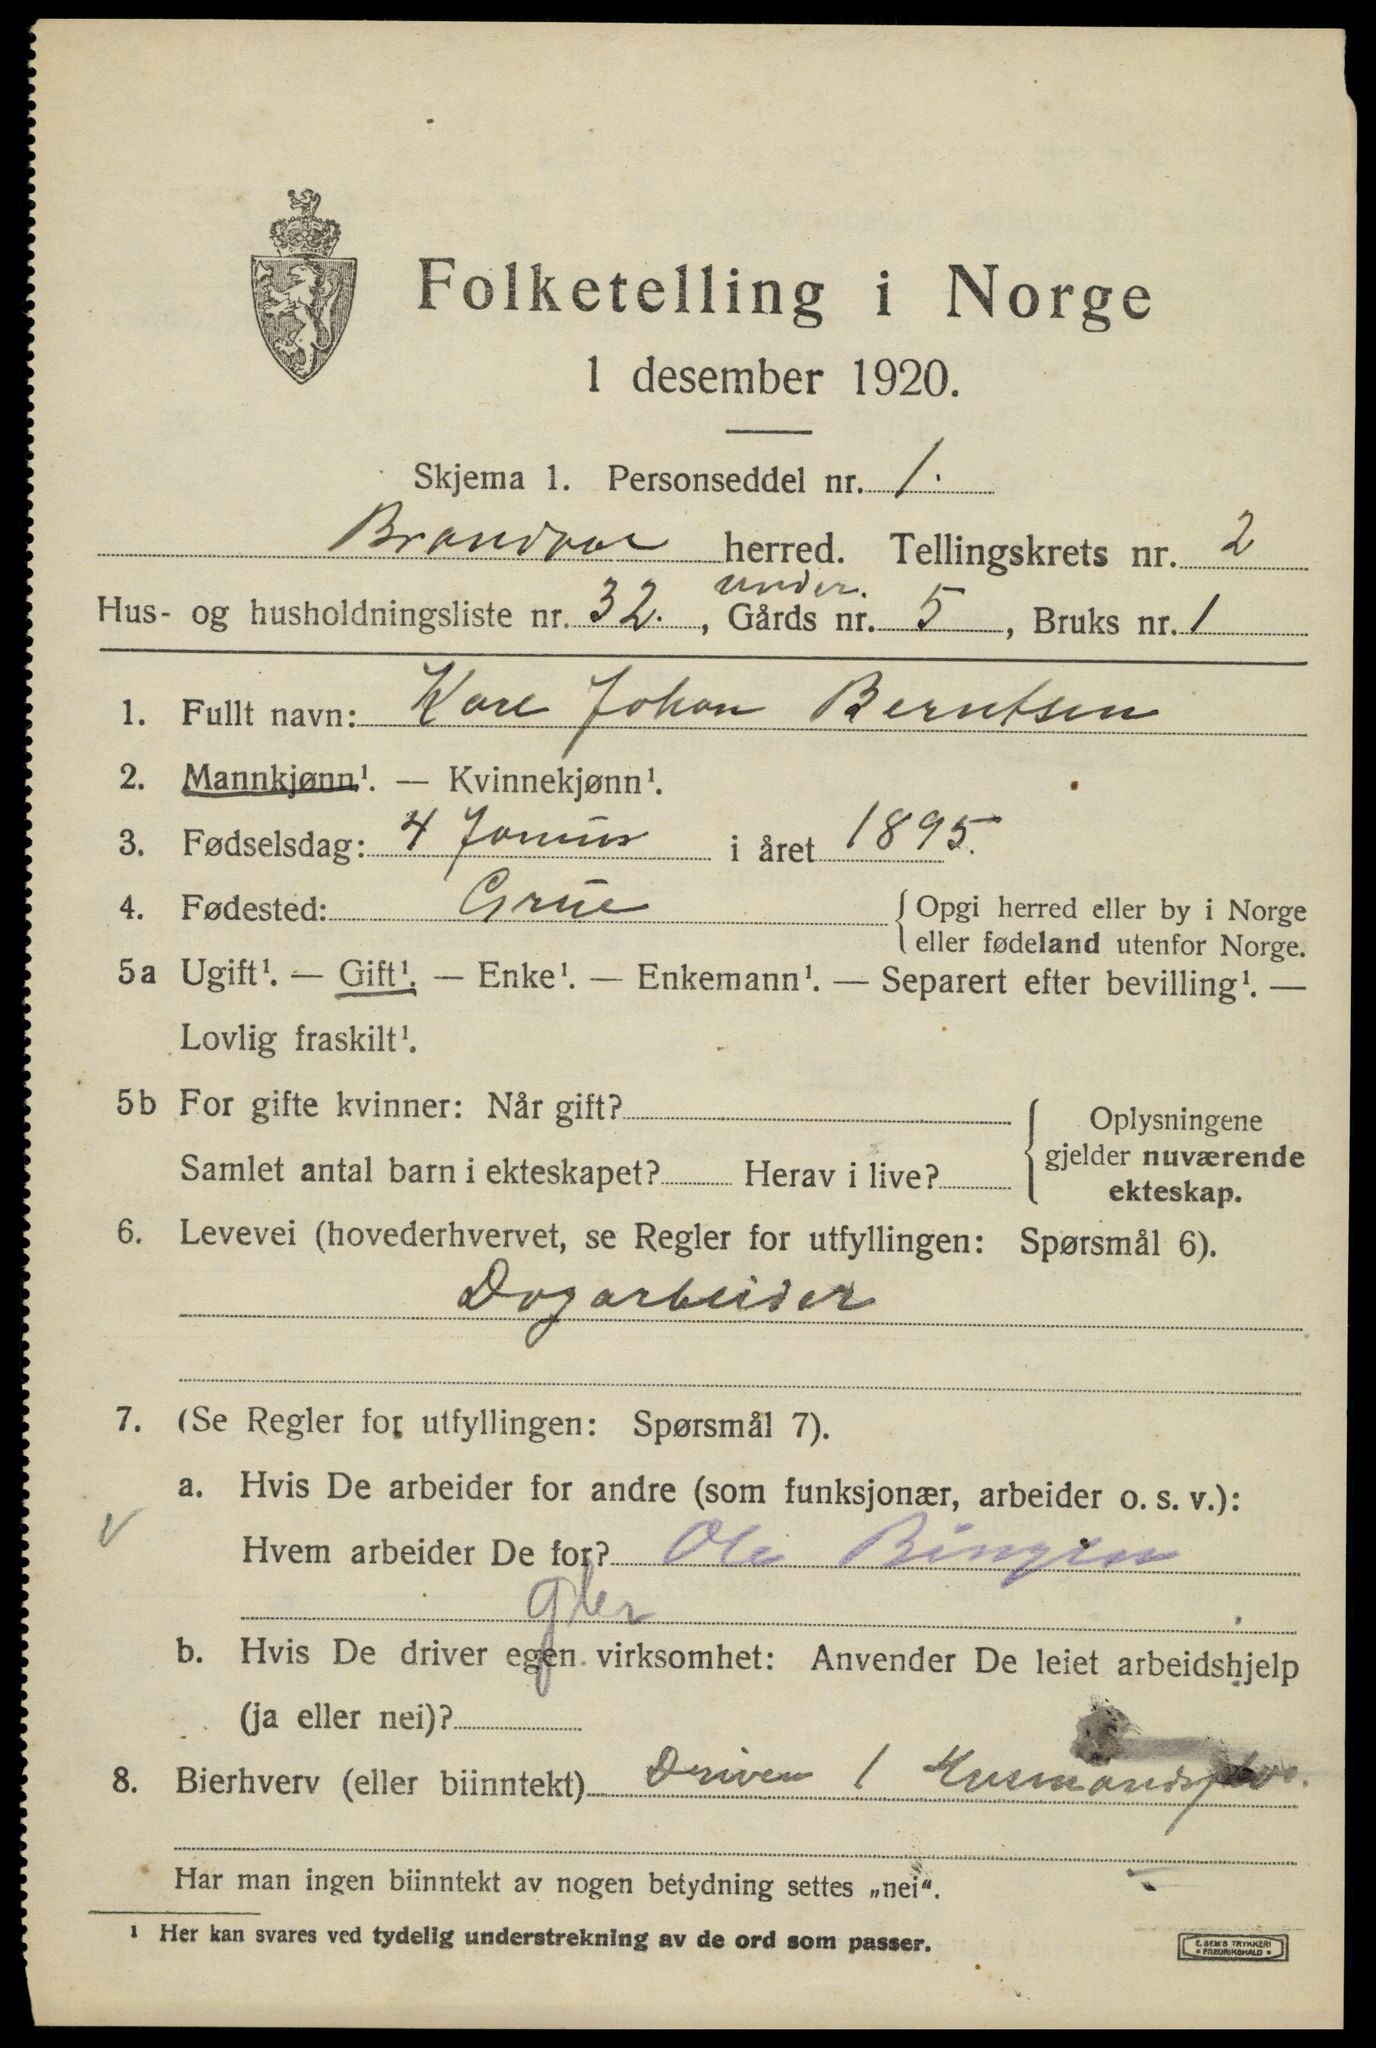 Folketelling i Norge
1 desember 1920.
Skjema 1. Personseddel nr. 1.
Brandval herred. Tellingskrets nr. 2
under.
Hus- og husholdningsliste nr. 32., Gårds nr. 5, Bruks nr. 1
1. Fullt navn: Karl Johan Berntsen
2. Mannkjønn¹. — Kvinnekjønn¹.
3. Fødselsdag: 4 Januar i året 1895.
4. Fødested: Grue { Opgi herred eller by i Norge
eller fødeland utenfor Norge.
5a Ugift¹. — Gift¹. — Enke¹. — Enkemann¹. — Separert efter bevilling¹. —
Lovlig fraskilt¹.
5b For gifte kvinner: Når gift?
Samlet antal barn i ekteskapet? Herav i live?
{ Oplysningene
gjelder nuværende
ekteskap.
6. Levevei (hovederhvervet, se Regler for utfyllingen: Spørsmål 6).
Dagarbeider
7. (Se Regler for utfyllingen: Spørsmål 7).
a. Hvis De arbeider for andre (som funksjonær, arbeider o. s. v.):
Hvem arbeider De for? Ole Bingen
b. Hvis De driver egen virksomhet: Anvender De leiet arbeidshjelp
(ja eller nei)?
8. Bierhverv (eller biinntekt) Driver 1 Husmandsplas.
Har man ingen biinntekt av nogen betydning settes „nei“.
¹ Her kan svares ved tydelig understrekning av de ord som passer.
E. SEM'S TRYKKERI
FREDRIKSHALD